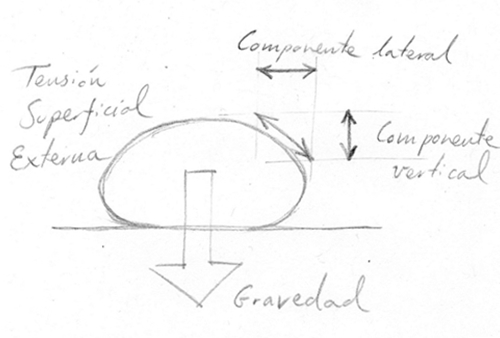 Componente lateral
Tensión
Superficial
Externa
Componente
vertical
Gravedad